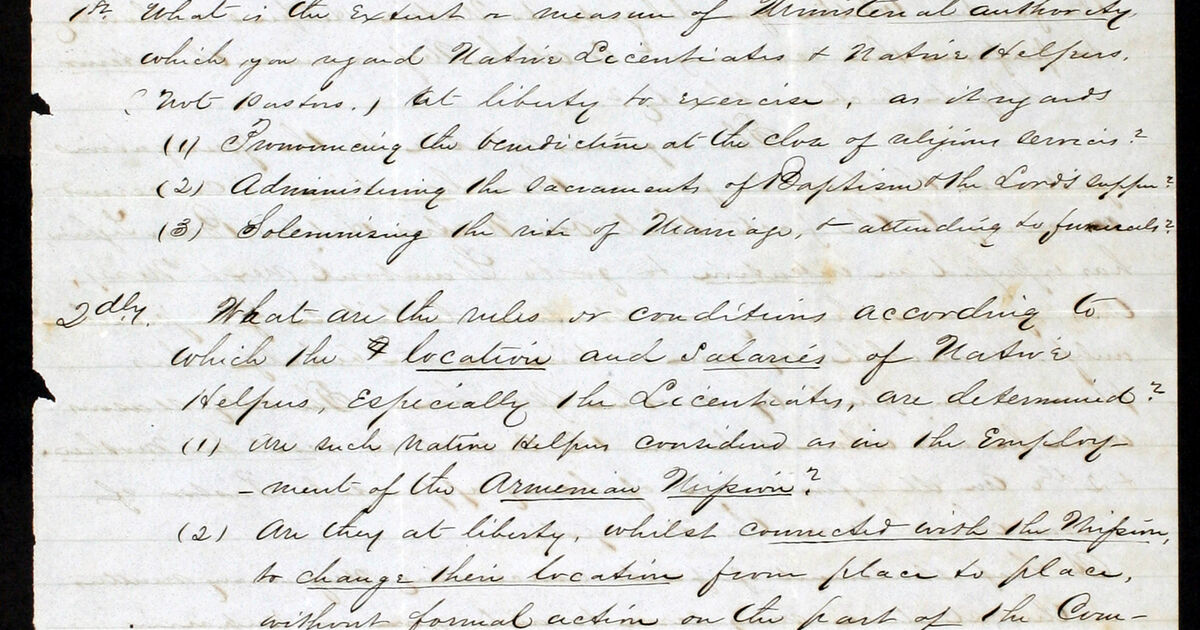 1st. What is the extent or measure of Ministerial authority,
which you regard Native Licentiates & Native Helpers,
(Not Pastors,) at liberty to exercise, as it regards
(1) Pronouncing the benediction at the close of religious services?
(2) Administering the sacraments of Baptism & the Lord's supper?
(3) Solemnising the rite of Marriage, & attending to funerals?
2dly. What are the rules or conditions according to
which the location and salaries of Native
Helpers, Especially the Licentiates, are determined?
(1) Are such Native Helpers considered as in the Employ-
-ment of the Armenian Mission?
(2) Are they at liberty, whilst connected with the Mission,
to change their location from place to place,
without formal action on the part of the Com-